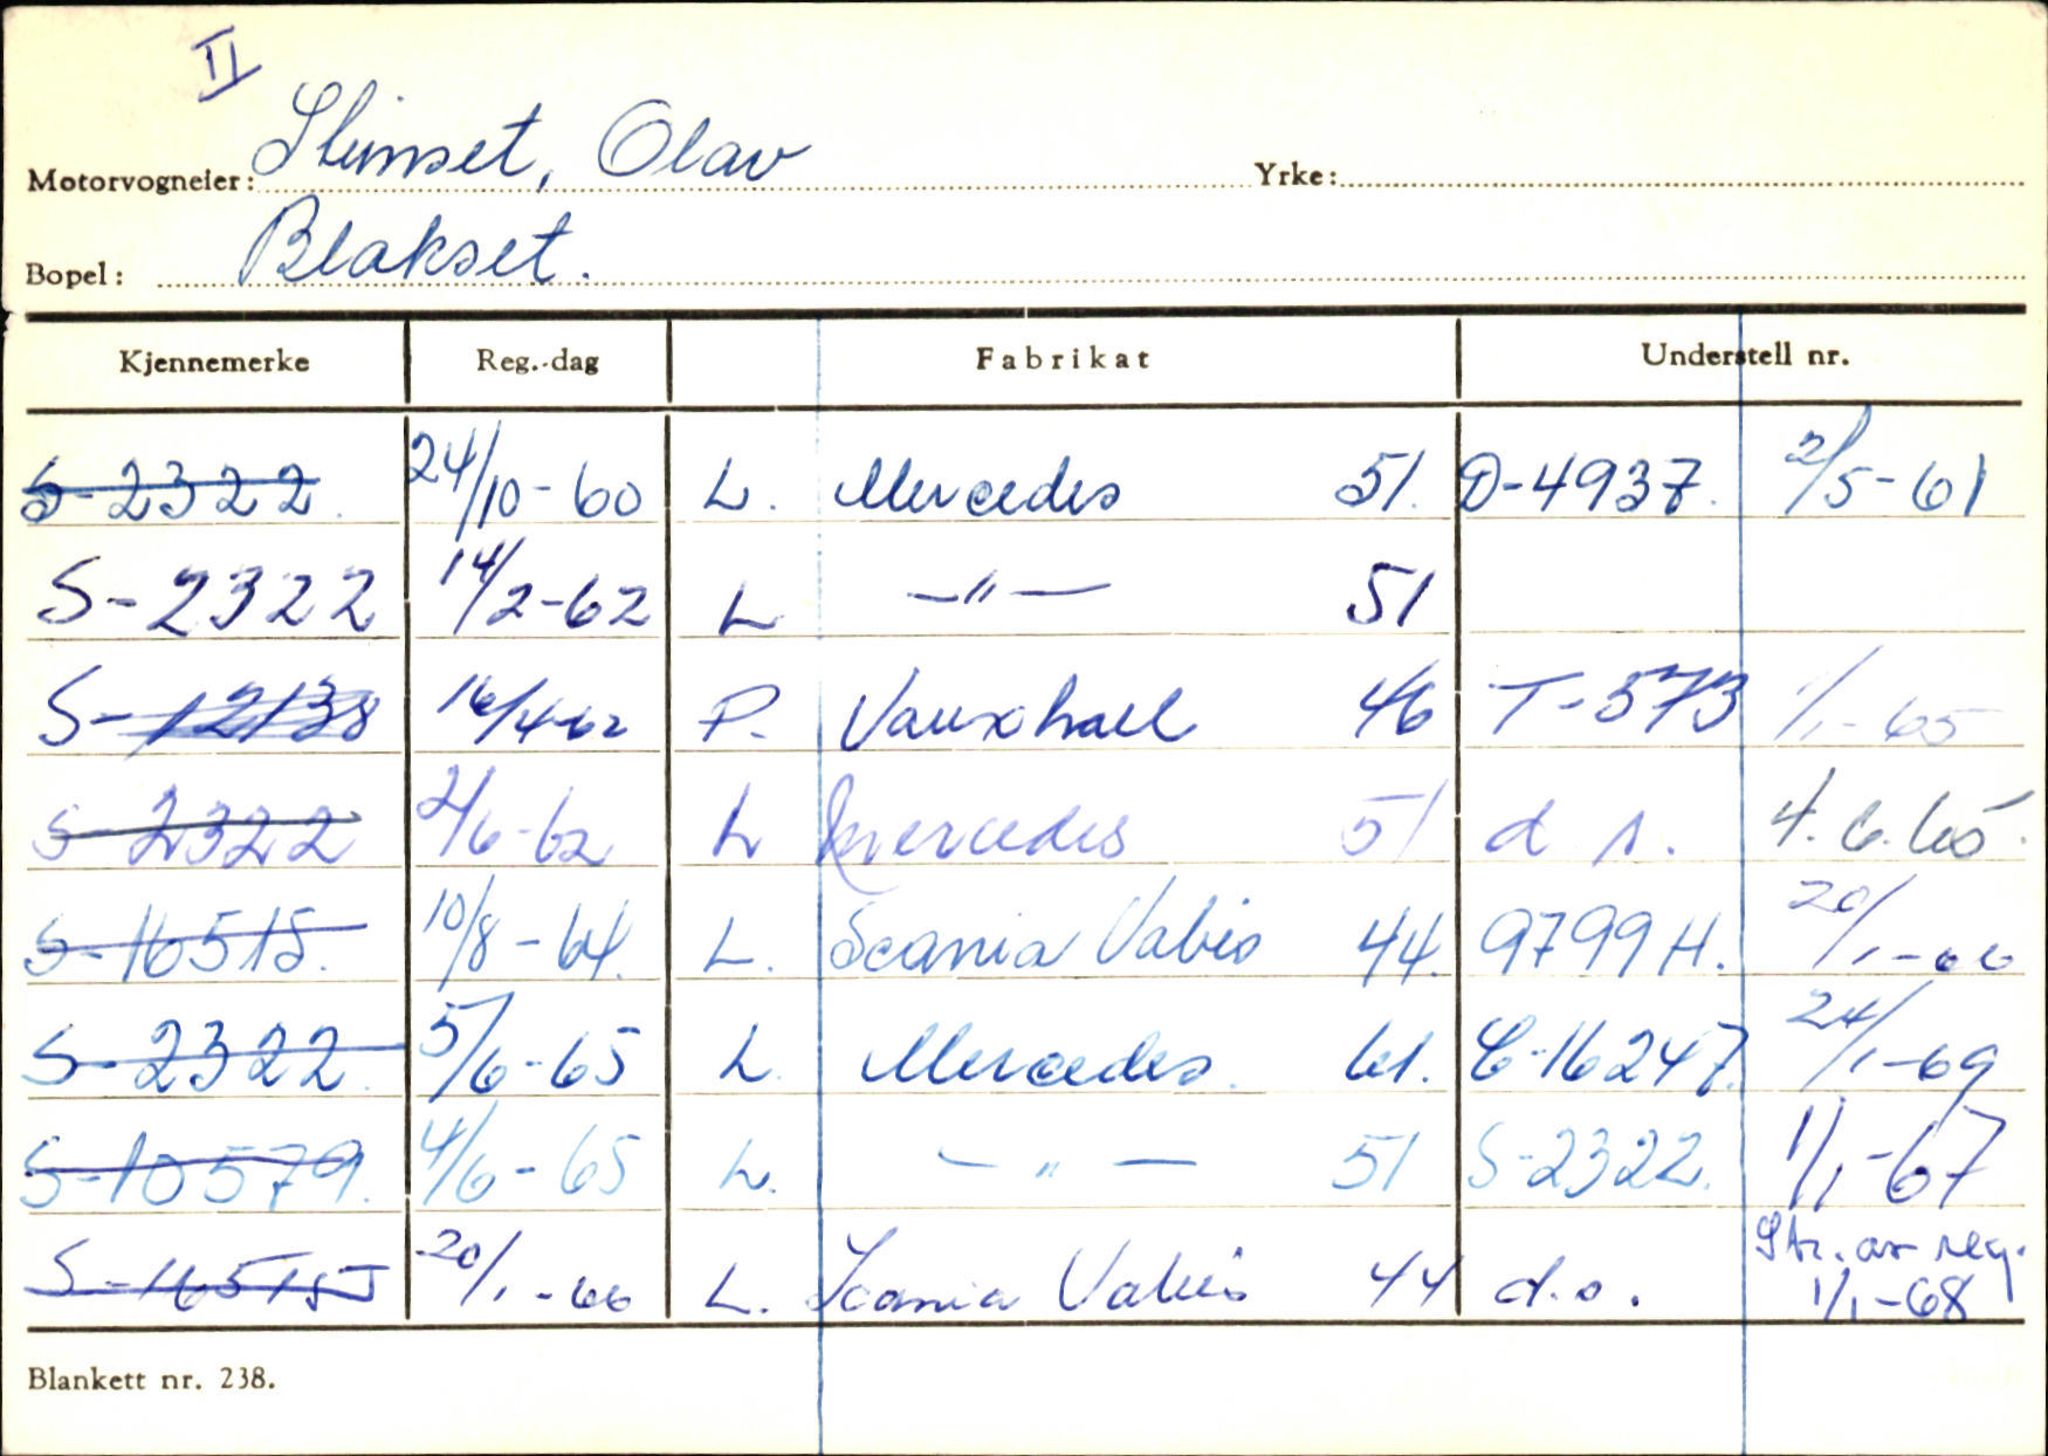 II
Motorvogneier: Steinset, Olav Yrke:
Bopel: Blakset.
Kjennemerke Reg.-dag Fabrikat Understell nr.
S-2322. 24/10-60 L. Mercedes 51. D-4937. 2/5-61
S-2322 14/2-62 L -"- 51
S-12138 16/4-62 P. Vauxhall 46 T-573 1/1-65
S-2322 2/6-62 L Mercedes 51 d s. 4.6.65.
S-16515. 10/8-64. L. Scania Vabis 44. 9799 H. 20/1-66
S-2322. 5/6-65 L. Mercedes. 61. C-16247. 24/1-69
S-10579. 4/6-65 L. -"- 51 S-2322. 1/1-67
S-16515 20/1-66 L. Scania Vabis 44 d.o. Str. av reg. 1/1-68
Blankett nr. 238.